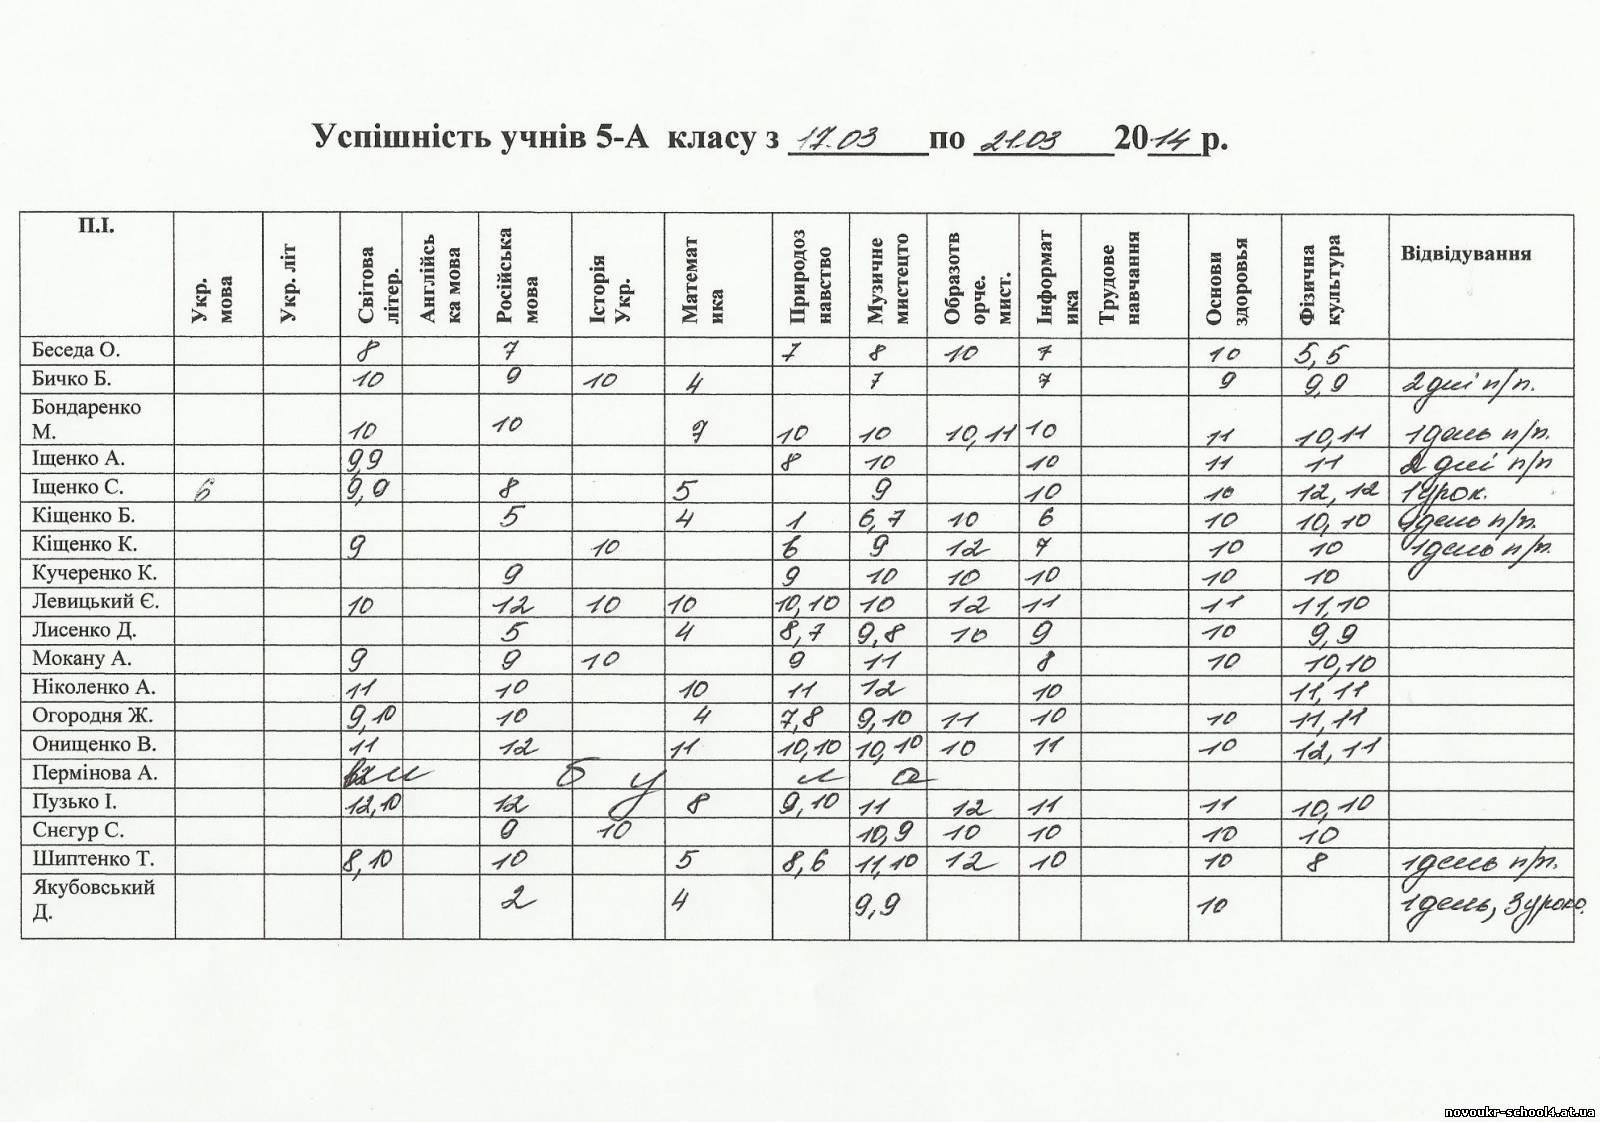 Успішність учнів 5-А класу з 17.03 по 21.03 2014 р.
П.І. Укр. мова Укр. літ Світова літер. Англійсь ка мова Російська мова Історія Укр. Математ ика Природоз навство Музичне мистецто Образотв орче. мист. Інформат ика Трудове навчання Основи здоровья Фізична культура Відвідування
Беседа О. 8 7 7 8 10 7 10 5,5
Бичко Б. 10 9 10 4 7 7 9 9,9 2 дні п/п.
Бондаренко М. 10 10 7 10 10 10,11 10 11 10,11 1 день п/п.
Іщенко А. 9,9 8 10 10 11 11 2 дні п/п
Іщенко С. 6 9,9 8 5 9 10 10 12,12 1 урок.
Кіщенко Б. 5 4 1 6,7 10 6 10 10,10 1 день п/п.
Кіщенко К. 9 10 6 9 12 7 10 10 1 день п/п.
Кучеренко К. 9 9 10 10 10 10 10
Левицький Є. 10 12 10 10 10,10 10 12 11 11 11,10
Лисенко Д. 5 4 8,7 9,8 10 9 10 9,9
Мокану А. 9 9 10 9 11 8 10 10,10
Ніколенко А. 11 10 10 11 12 10 11,11
Огородня Ж. 9,10 10 4 7,8 9,10 11 10 10 11,11
Онищенко В. 11 12 11 10,10 10,10 10 11 10 12,11
Пермінова А. б у л а
Пузько І. 12,10 12 8 9,10 11 12 11 11 10,10
Снєгур С. 9 10 10,9 10 10 10 10
Шиптенко Т. 8,10 10 5 8,6 11,10 12 10 10 8 1 день п/п.
Якубовський Д. 2 4 9,9 10 1 день, 3 уроко.
novoukr-school4.at.ua